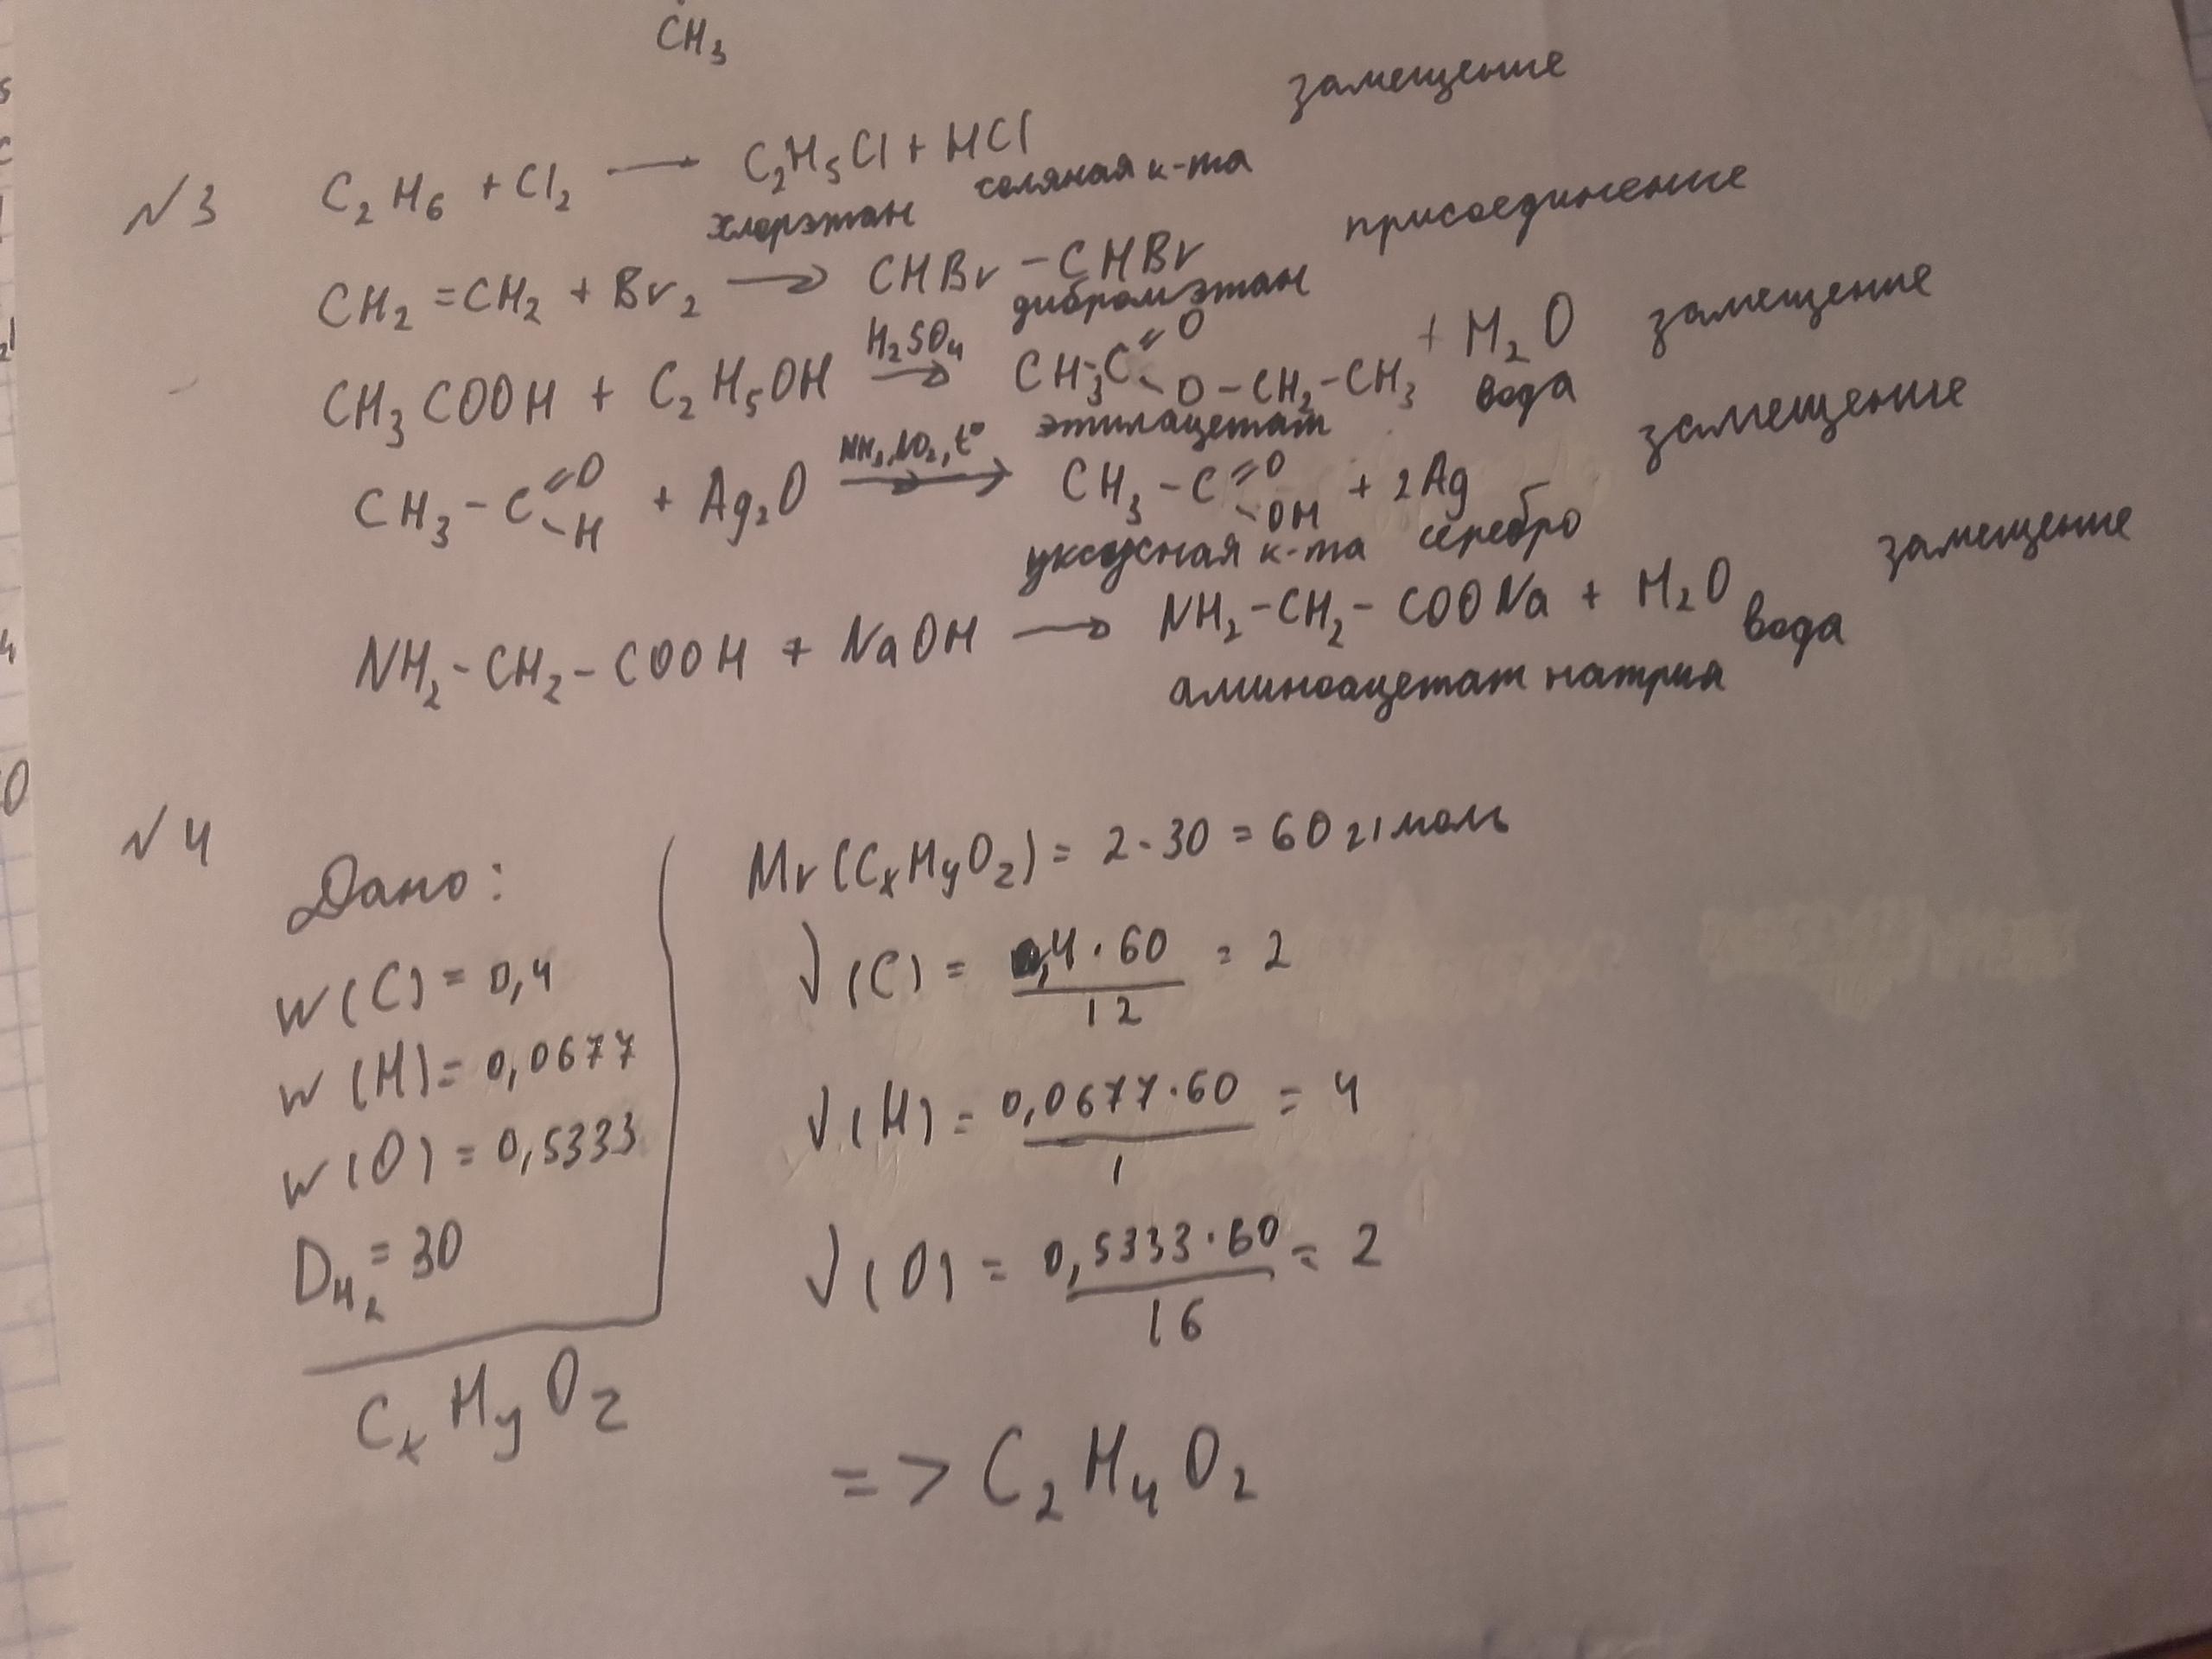 CH₃
№3 C₂H₆ + Cl₂ → C₂H₅Cl + HCl замещение
хлорэтан соляная к-та
CH₂ = CH₂ + Br₂ → CHBr - CHBr присоединение
дибромэтан
CH₃COOH + C₂H₅OH →(H₂SO₄) CH₃-C(=O)-O-CH₂-CH₃ + H₂O замещение
этилацетат вода
CH₃-C(=O)-H + Ag₂O → CH₃-C(=O)-OH + 2Ag замещение
уксусная к-та серебро
NH₂-CH₂-COOH + NaOH → NH₂-CH₂-COONa + H₂O замещение
аминоацетат натрия вода
№4
Дано:
W(C) = 0,4
W(H) = 0,0677
W(O) = 0,5333
D H₂ = 30
CₓHᵧO_z
Mr(CₓHᵧO_z) = 2·30 = 60 г/моль
ν(C) = 0,4·60 / 12 = 2
ν(H) = 0,0677·60 / 1 = 4
ν(O) = 0,5333·60 / 16 = 2
=> C₂H₄O₂